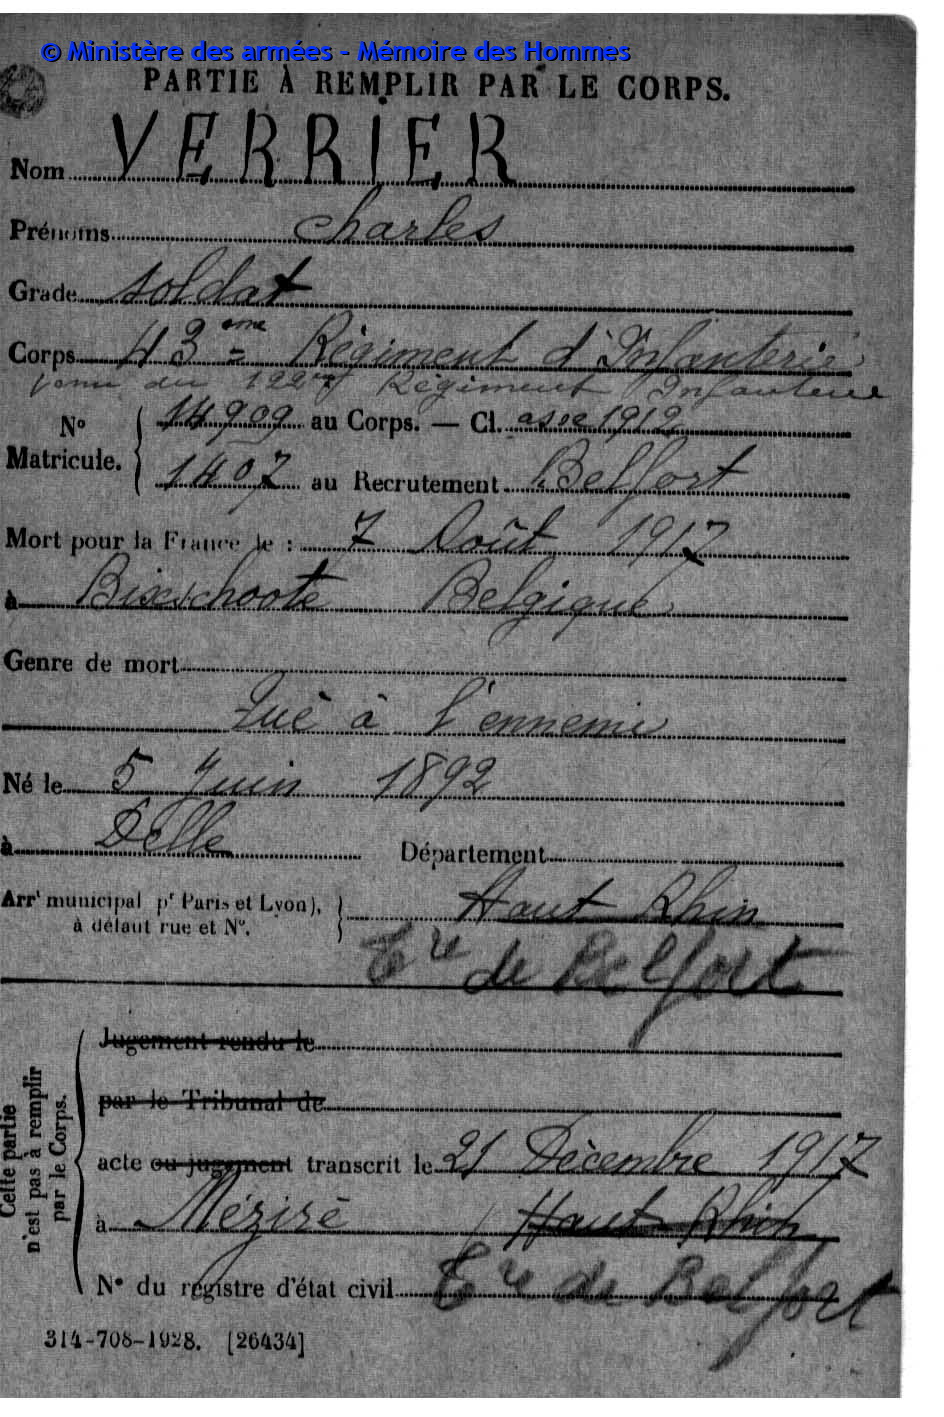 © Ministère des armées - Mémoire des Hommes
PARTIE À REMPLIR PAR LE CORPS.
Nom VERRIER
Prénoms Charles
Grade soldat
Corps 43ème Régiment d'Infanterie
venu du 122e Régiment Infanterie
N° Matricule. 14909 au Corps. — Cl. asse 1912
1407 au Recrutement Belfort
Mort pour la France le : 7 Août 1917
à Bixschoote Belgique
Genre de mort
Tué à l'ennemi
Né le 5 Juin 1892
à Delle Département
Arrt municipal pr Paris et Lyon), Haut Rhin
à défaut rue et N°.
Tre de Belfort
Jugement rendu le
par le Tribunal de
acte ou jugement transcrit le 21 Décembre 1917
à Méziré Haut Rhin
N° du registre d'état civil Tre de Belfort
Cette partie
n'est pas à remplir
par le Corps.
314-708-1928. [26434]